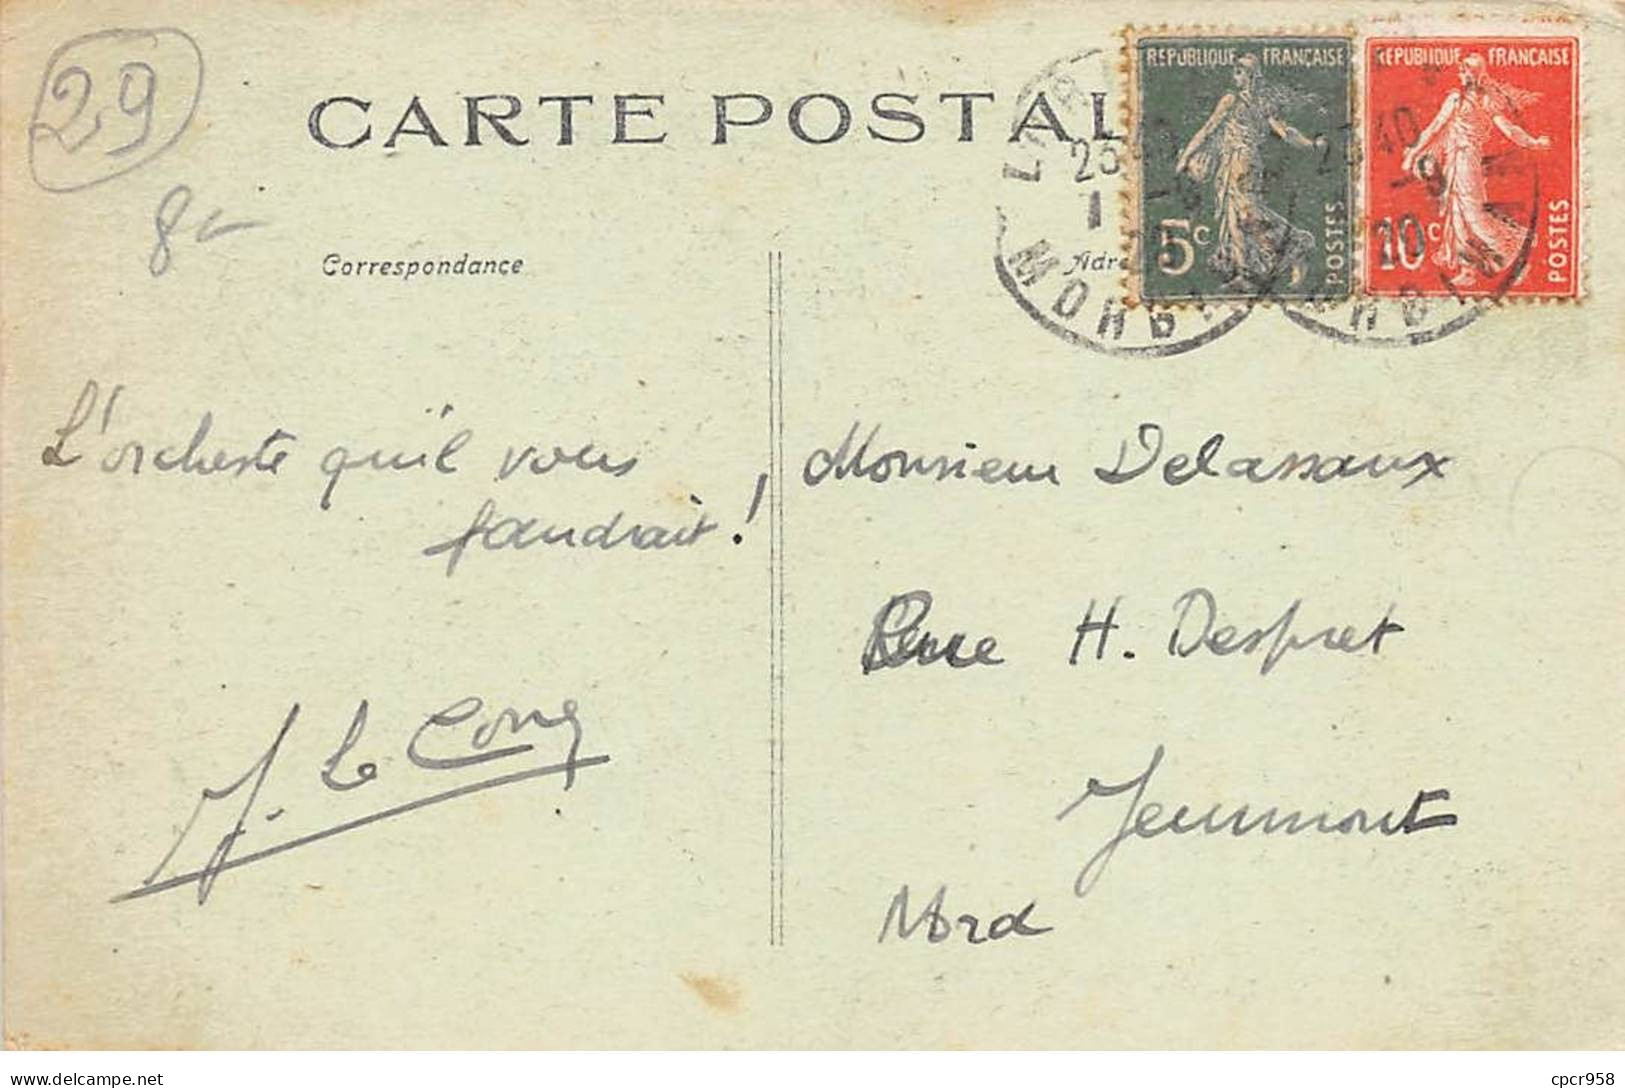 29
8
CARTE POSTAL
Correspondance
Adr
RÉPUBLIQUE FRANÇAISE
5c
POSTES
RÉPUBLIQUE FRANÇAISE
10c
POSTES
MORBIHAN
L'orcheste qu'il vous
faudrait !
J. Le Corre
Monsieur Delassaux
Rue H. Despret
Jeumont
Nord
delcampe.net
cpcr958